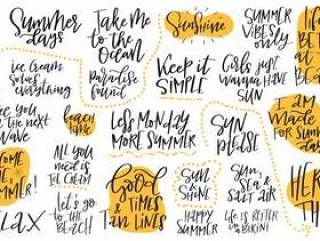 Summer
days
Take Me
to the
Ocean
Sunshine
SUMMER
VIBES
only
life
BETT
AT
BEA
ice cream
solves
everything
paradise
found
Keep it
SIMPLE
Girls just
wanna HAVE
SUN
you
the next
wave
beach
time
Less Monday
MORE SUMMER
SUN
PLEASE
I AM
MADE
FOR SUMM
DAYS
THE
SUMMER!
All you
need is
ICE CREAM!
Good
TIMES
& TAN LINES
SUN
&
SHINE
Sun,
SEA &
SALT AIR
HER
TH
let's go
to the
BEACH!
HAPPY
SUMMER
Life is BETTER
in BIKINI